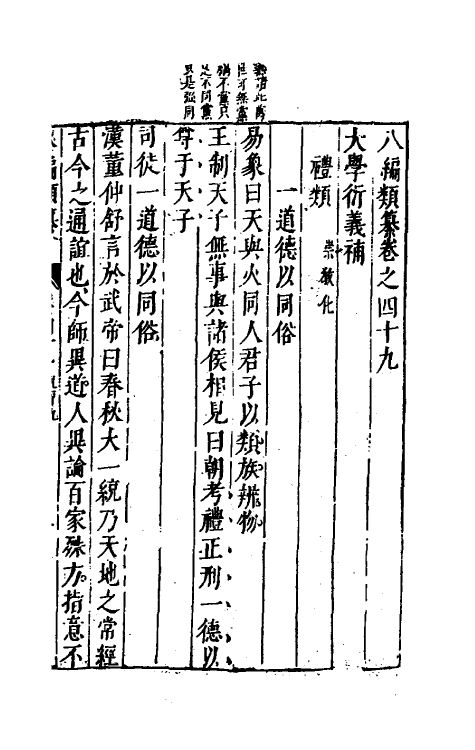 八編類纂卷之四十九
大學衍義補
禮類 崇敎化
一道德以同俗
易象曰天與火同人君子以類族辨物
王制天子無事與諸侯相見曰朝考禮正刑一德以
尊于天子
司徒一道德以同俗
漢董仲舒言於武帝曰春秋大一統乃天地之常經
古今之通誼也今師異道人異論百家殊方指意不